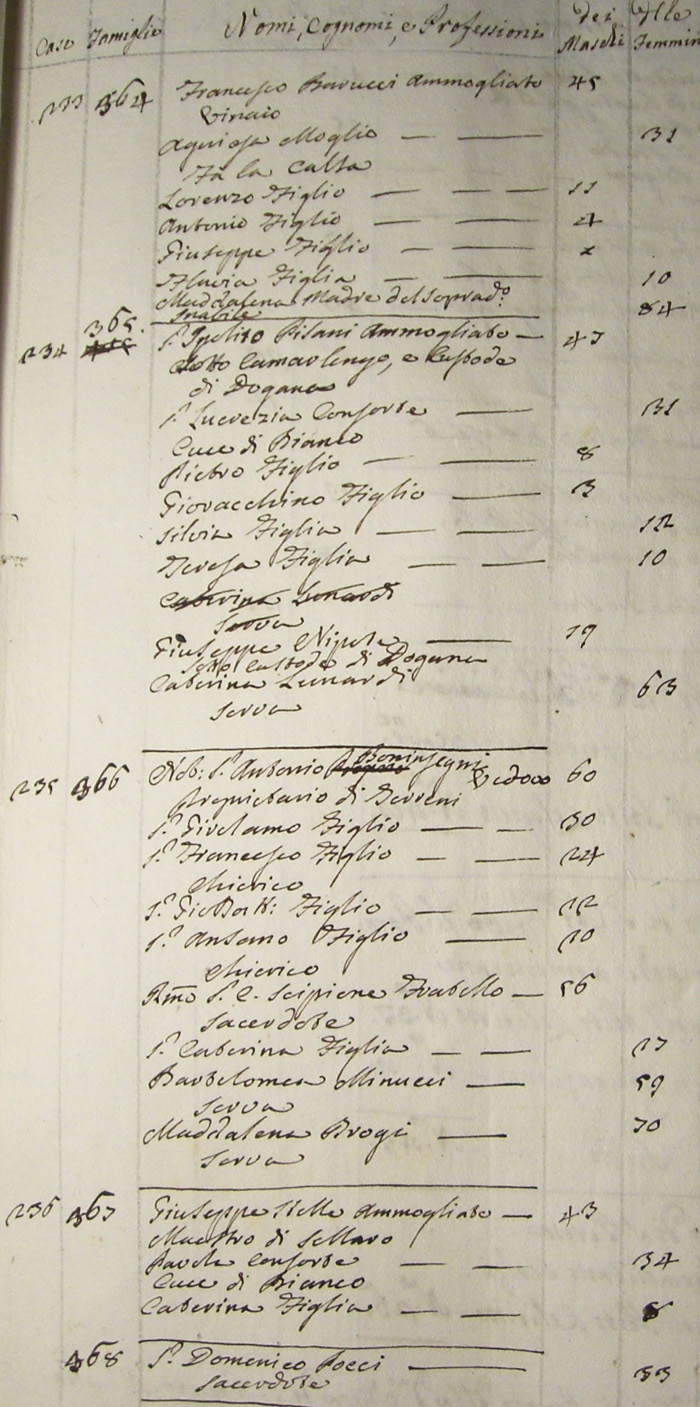 Case Famiglie Nomi, Cognomi, e Professioni dei Maschi dlle Femmin
233 364 Francesco Barucci Ammogliato 45
Vinaio
Agniesa Moglie 31
Fà la Calza
Lorenzo Figlio 11
Antonio Figlio 4
Giuseppe Figlio
Flavia Figlia 10
Maddalena Madre del Soprad.o 84
Inabile
234 365. S.r Ipolito Pisani Ammogliato 47
Sotto Camarlengo, e Custode
di Dogana
S.a Lucrezia Consorte 31
Cuce di Bianco
Pietro Figlio 8
Giovacchino Figlio 3
Silvia Figlia 12
Teresa Figlia 10
Caterina Lunardi
Serva
Giuseppe Nipote 19
Sotto Custode di Dogana
Caterina Lunardi 63
Serva
235 366 Nob: S.r Antonio Boninsegni Vedovo 60
Proprietario di Terreni
S.r Girolamo Figlio 30
S.r Francesco Figlio 24
Chierico
S.r Gio Batt: Figlio 22
S.r Ansano Figlio 20
Chierico
Rmo S.r C. Scipione Fratello 56
Sacerdote
S.a Caterina Figlia 27
Bartolomea Minucci 59
Serva
Maddalena Brogi 70
Serva
236 367 Giuseppe Stelle Ammogliato 43
Maestro di Sellaro
Paola Consorte 34
Cuce di Bianco
Caterina Figlia 8
368 S.r Domenico Pocci 53
Sacerdote